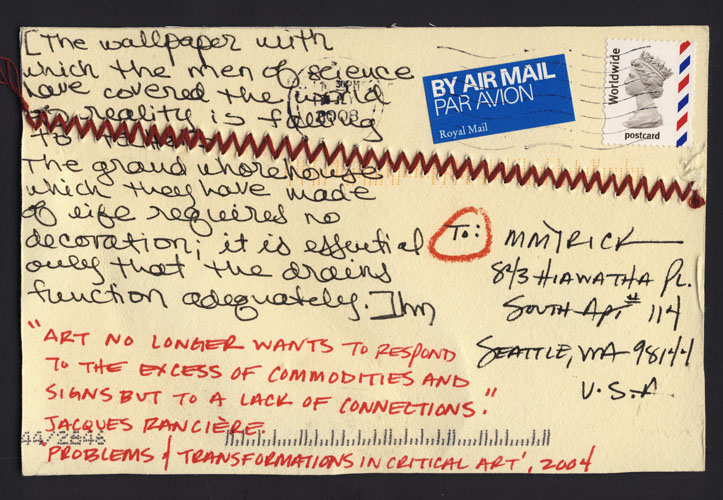 [The wallpaper with
which the men of science
have covered the world
of reality is falling
to tatters
The grand whorehouse
which they have made
of life requires no
decoration; it is essential
only that the drains
function adequately.] hm
"ART NO LONGER WANTS TO RESPOND
TO THE EXCESS OF COMMODITIES AND
SIGNS BUT TO A LACK OF CONNECTIONS."
JACQUES RANCIÈRE
PROBLEMS & TRANSFORMATIONS IN CRITICAL ART', 2004
44/2846
2008
BY AIR MAIL
PAR AVION
Royal Mail
Worldwide
postcard
TO:
M MYRICK
843 HIAWATHA PL.
SOUTH APT # 114
SEATTLE, WA 98144
U.S.A